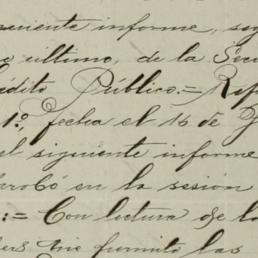 siguiente informe, se
o último, de la Secc
rédito Público.= Ref
1º, fecha el 16 de
el siguiente informe
robó en la sesión
:= Con lectura de la
me permito las